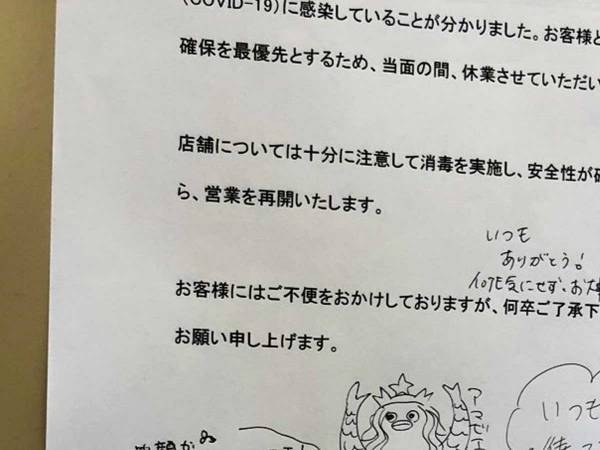 (COVID-19)に感染していることが分かりました。お客様と
確保を最優先とするため、当面の間、休業させていただい
店舗については十分に注意して消毒を実施し、安全性が確
ら、営業を再開いたします。
いつも
ありがとう!
何も気にせず、お大
お客様にはご不便をおかけしておりますが、何卒ご了承下
お願い申し上げます。
アマビエ
いつも
待って
笑顔が